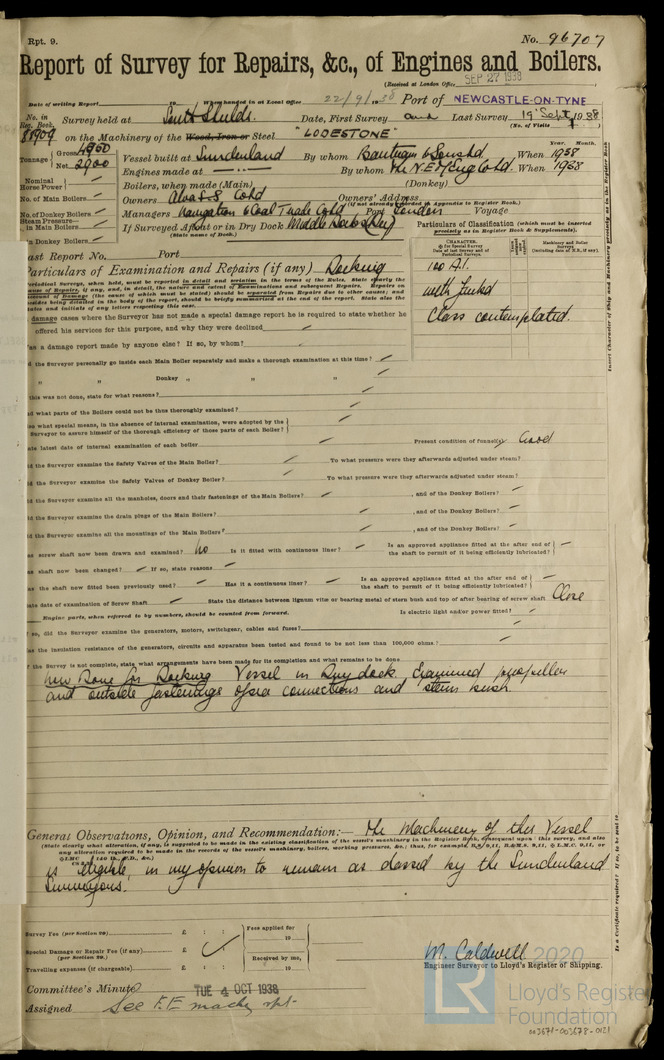 Rpt. 9.
No. 96707
Report of Survey for Repairs, &c., of Engines and Boilers.
(Received at London Office SEP 27 1938
Date of writing Report 19 When handed in at Local Office 22/9/1938 Port of NEWCASTLE-ON-TYNE
No. in Reg. Book. Survey held at South Shields. Date, First Survey and Last Survey 19th Sept 1938
(No. of Visits
88909 on the Machinery of the Wood, Iron or Steel "LODESTONE"
Tonnage Gross 4950
Net 2900
Vessel built at Sunderland By whom When 1938
Year. Month.
Engines made at By whom The N.E. M. Eng Co Ld. When 1938
Nominal Horse Power
Boilers, when made (Main) (Donkey)
No. of Main Boilers
Owners Alva S.S. Co Ld Owners' Address
(if not already recorded in Appendix to Register Book.)
No. of Donkey Boilers
Managers Navigation & Coal Trade Co Ld Port London Voyage
Steam Pressure in Main Boilers
If Surveyed Afloat or in Dry Dock Middle Dock (Dry)
(State name of Dock.)
in Donkey Boilers
Particulars of Classification (which must be inserted precisely as in Register Book & Supplements).
ast Report No. Port
Particulars of Examination and Repairs (if any) Docking
100 A.1.
with freeb'd
Class contemplated.
damage cases where the Surveyor has not made a special damage report he is required to state whether he
offered his services for this purpose, and why they were declined
as a damage report made by anyone else? If so, by whom?
d the Surveyor personally go inside each Main Boiler separately and make a thorough examination at this time?
" " Donkey " " "
this was not done, state for what reasons?
d what parts of the Boilers could not be thus thoroughly examined?
so what special means, in the absence of internal examination, were adopted by the
Surveyor to assure himself of the thorough efficiency of those parts of each Boiler?
ate latest date of internal examination of each boiler Present condition of funnel(s) Good
d the Surveyor examine the Safety Valves of the Main Boiler? To what pressure were they afterwards adjusted under steam?
d the Surveyor examine the Safety Valves of Donkey Boiler? To what pressure were they afterwards adjusted under steam?
d the Surveyor examine all the manholes, doors and their fastenings of the Main Boilers? , and of the Donkey Boilers?
d the Surveyor examine the drain plugs of the Main Boilers? , and of the Donkey Boilers?
d the Surveyor examine all the mountings of the Main Boilers? , and of the Donkey Boilers?
as screw shaft now been drawn and examined? No Is it fitted with continuous liner? Is an approved appliance fitted at the after end of the shaft to permit of it being efficiently lubricated?
as shaft now been changed? If so, state reasons
as the shaft now fitted been previously used? Has it a continuous liner? Is an approved appliance fitted at the after end of the shaft to permit of it being efficiently lubricated?
ate date of examination of Screw Shaft State the distance between lignum vitæ or bearing metal of stern bush and top of after bearing of screw shaft Close
Engine parts, when referred to by numbers, should be counted from forward. Is electric light and/or power fitted?
so, did the Surveyor examine the generators, motors, switchgear, cables and fuses?
as the insulation resistance of the generators, circuits and apparatus been tested and found to be not less than 100,000 ohms?
the Survey is not complete, state what arrangements have been made for its completion and what remains to be done
Now Done for Docking Vessel in Dry dock. Examined propeller
and outside fastenings of sea connections and stern bush
General Observations, Opinion, and Recommendation:— The Machinery of this Vessel
(State clearly what alteration, if any, is suggested to be made in the existing classification of the vessel's machinery in the Register Book, consequent upon this survey, and also
any alteration required to be made in the records of the vessel's machinery, boilers, working pressures, &c.; thus, for example,
is eligible, in my opinion to remain as classed by the Sunderland
Surveyors.
Survey Fee (per Section 29) £ : :
Fees applied for
19
Special Damage or Repair Fee (if any) £ : :
(per Section 29.)
Received by me,
Travelling expenses (if chargeable) £ : :
19
M. Caldwell
2020
Engineer Surveyor to Lloyd's Register of Shipping.
Committee's Minute TUE 4 OCT 1938
Assigned See F.E. machy rpt.
Insert Character of Ship and Machinery precisely as in the Register Book
Is a Certificate required? If so, to be sent to
LR Lloyd's Register
Foundation
003671-003678-0121